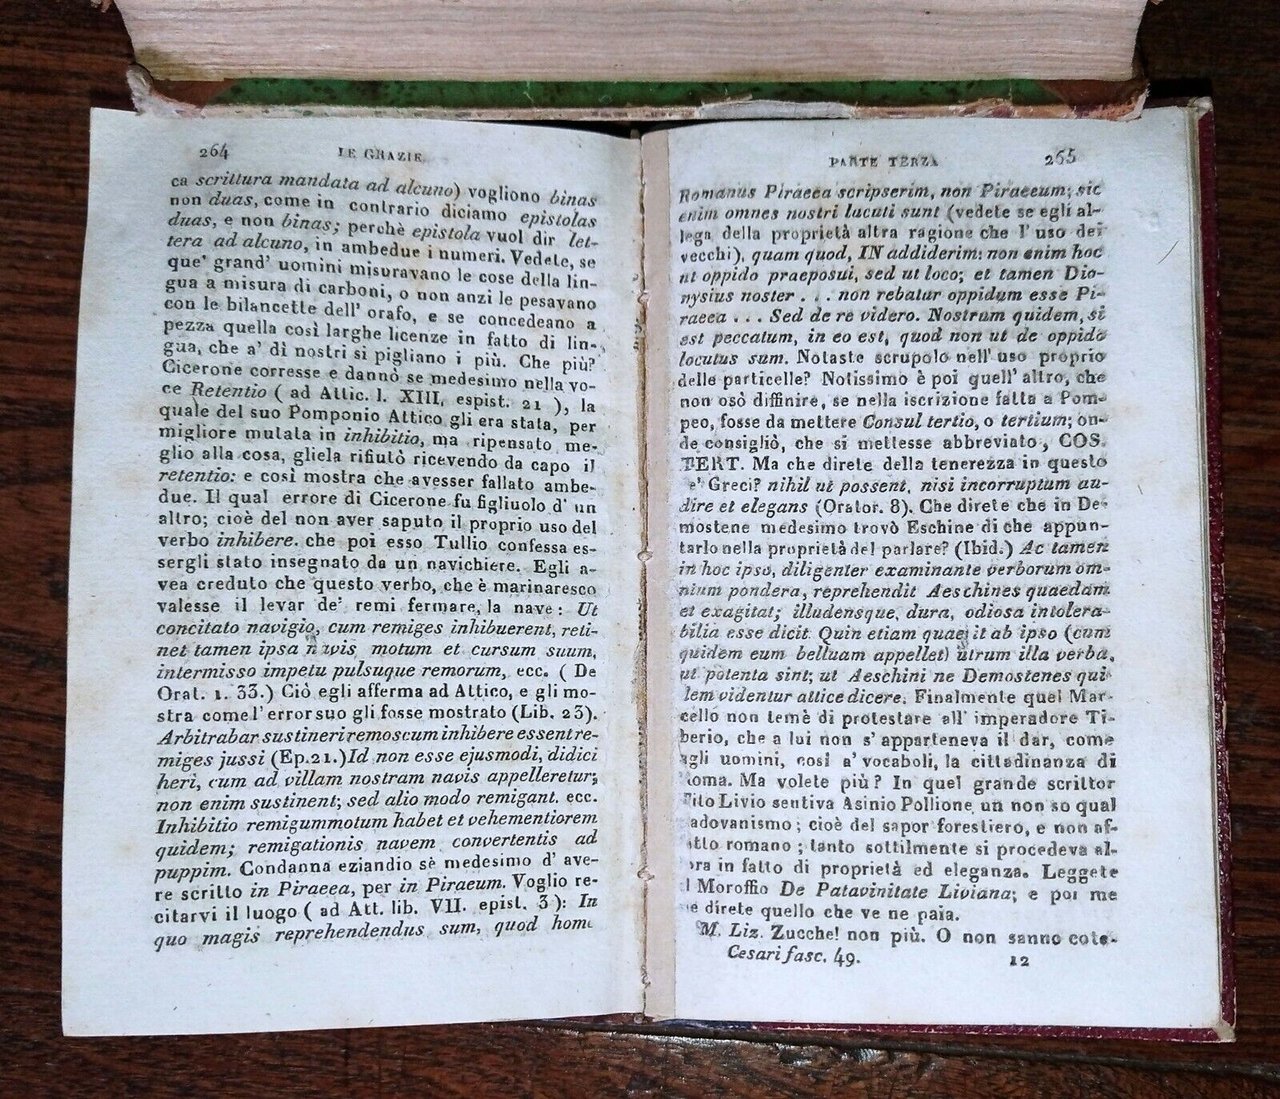 264 LE GRAZIE
ca scrittura mandata ad alcuno) vogliono binas
non duas, come in contrario diciamo epistolas
duas, e non binas; perchè epistola vuol dir let-
tera ad alcuno, in ambedue i numeri. Vedete, se
que' grand' uomini misuravano le cose della lin-
gua a misura di carboni, o non anzi le pesavano
con le bilancette dell' orafo, e se concedeano a
pezza quella così larghe licenze in fatto di lin-
gua, che a' dì nostri si pigliano i più. Che più?
Cicerone corresse e dannò se medesimo nella vo-
ce Retentio ( ad Attic. l. XIII, espist. 21 ), la
quale del suo Pomponio Attico gli era stata, per
migliore mutata in inhibitio, ma ripensato me-
glio alla cosa, gliela rifiutò ricevendo da capo il
retentio: e così mostra che avesser fallato ambe-
due. Il qual errore di Cicerone fu figliuolo d' un
altro; cioè del non aver saputo il proprio uso del
verbo inhibere. che poi esso Tullio confessa es-
sergli stato insegnato da un navichiere. Egli a-
vea creduto che questo verbo, che è marinaresco
valesse il levar de' remi fermare, la nave: Ut
concitato navigio, cum remiges inhibuerent, reti-
net tamen ipsa navis motum et cursum suum,
intermisso impetu pulsuque remorum, ecc. ( De
Orat. 1. 33.) Ciò egli afferma ad Attico, e gli mo-
stra come l' error suo gli fosse mostrato (Lib. 23).
Arbitrabar sustineri remos cum inhibere essent re-
miges jussi (Ep.21.) Id non esse ejusmodi, didici
heri, cum ad villam nostram navis appelleretur;
non enim sustinent; sed alio modo remigant. ecc.
Inhibitio remigum motum habet et vehementiorem
quidem; remigationis navem convertentis ad
puppim. Condanna eziandio sè medesimo d' ave-
re scritto in Piraeea, per in Piraeum. Voglio re-
citarvi il luogo ( ad Att. lib. VII. epist. 3 ): In
quo magis reprehendendus sum, quod hom
PARTE TERZA 265
Romanus Piraeea scripserim, non Piraeeum; sic
enim omnes nostri lucuti sunt (vedete se egli al-
lega della proprietà altra ragione che l' uso dei
vecchi), quam quod, IN addiderim: non enim hoc
ut oppido praeposui, sed ut loco; et tamen Dio-
nysius noster . . . non rebatur oppidum esse Pi-
raeea . . . Sed de re videro. Nostrum quidem, si
est peccatum, in eo est, quod non ut de oppido
locutus sum. Notaste scrupolo nell' uso proprio
delle particelle? Notissimo è poi quell' altro, che
non osò diffinire, se nella iscrizione fatta a Pom-
peo, fosse da mettere Consul tertio, o tertium; on-
de consigliò, che si mettesse abbreviato, COS.
TERT. Ma che direte della tenerezza in questo
e' Greci? nihil ut possent, nisi incorruptum au-
dire et elegans (Orator. 8). Che direte che in De-
mostene medesimo trovò Eschine di che appun-
tarlo nella proprietà del parlare? (Ibid.) Ac tamen
in hoc ipso, diligenter examinante verborum om-
nium pondera, reprehendit Aeschines quaedam
et exagitat; illudensque, dura, odiosa intolera-
bilia esse dicit Quin etiam quaerit ab ipso (cum
quidem eum belluam appellet) utrum illa verba,
ut potenta sint; ut Aeschini ne Demostenes qui
lem videntur attice dicere. Finalmente quel Mar-
cello non temè di protestare all' imperadore Ti-
berio, che a lui non s' apparteneva il dar, come
agli uomini, così a' vocaboli, la cittadinanza di
Roma. Ma volete più? In quel grande scrittor
Tito Livio sentiva Asinio Pollione un non so qual
adovanismo; cioè del sapor forestiero, e non af-
atto romano; tanto sottilmente si procedeva al-
ora in fatto di proprietà ed eleganza. Leggete
l Moroffio De Patavinitate Liviana; e poi me
e direte quello che ve ne paia.
M. Liz. Zucche! non più. O non sanno cote-
Cesari fasc. 49. 12